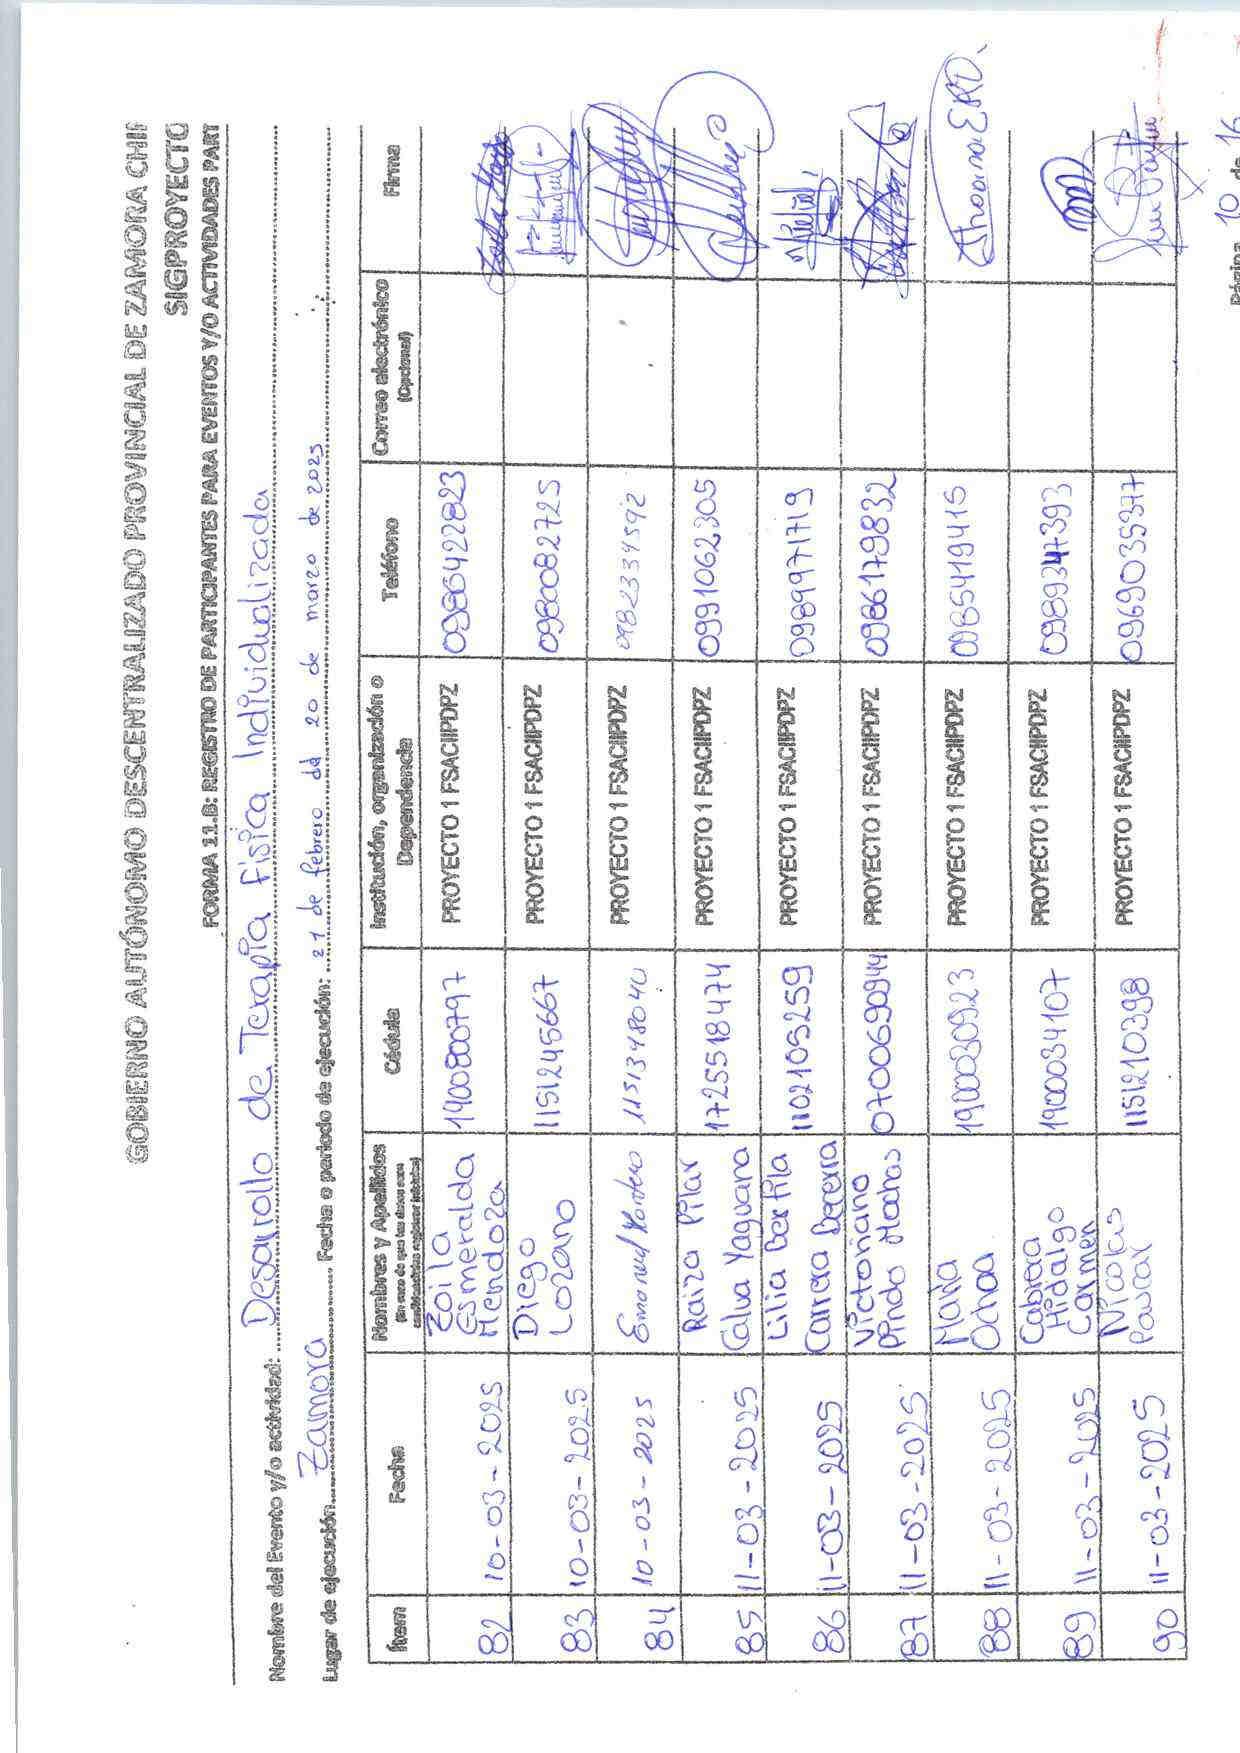 GOBIERNO AUTÓNOMO DESCENTRALIZADO PROVINCIAL DE ZAMORA CHIN
SIGPROYECTO
FORMA 11.B: REGISTRO DE PARTICIPANTES PARA EVENTOS Y/O ACTIVIDADES PART
Nombre del Evento y/o actividad: Desarollo de Terapia física Individualizada
Lugar de ejecución Zamora Fecha o periodo de ejecución: 21 de febrero dd 20 de marzo de 2025
Ítem Fecha Nombres y Apellidos Cédula Institución, organización o Dependencia Teléfono Correo electrónico (Opcional) Firma
82 10-03-2025 Zoila Esmeralda Mendoza 1900800797 PROYECTO 1 FSACIIPDPZ 0986422823
83 10-03-2025 Diego Lozano 1151245667 PROYECTO 1 FSACIIPDPZ 0980082725
84 10-03-2025 1151348040 PROYECTO 1 FSACIIPDPZ 0982334592
85 11-03-2025 Raiza Pilar Calva Yaguana 1725518474 PROYECTO 1 FSACIIPDPZ 0991062305
86 11-03-2025 Lilia Berfila Carrera Becerra 1102105259 PROYECTO 1 FSACIIPDPZ 0989971719
87 11-03-2025 Victoriano Pindo Machas 0700690944 PROYECTO 1 FSACIIPDPZ 0986179832
88 11-03-2025 Maria Ochoa 1900030923 PROYECTO 1 FSACIIPDPZ 0085419415
89 11-03-2025 Cabrera Hidalgo Carmen 1900034107 PROYECTO 1 FSACIIPDPZ 0989347393
90 11-03-2025 Nicolas Paucar 1151210398 PROYECTO 1 FSACIIPDPZ 0969035377
Página 10 de 16